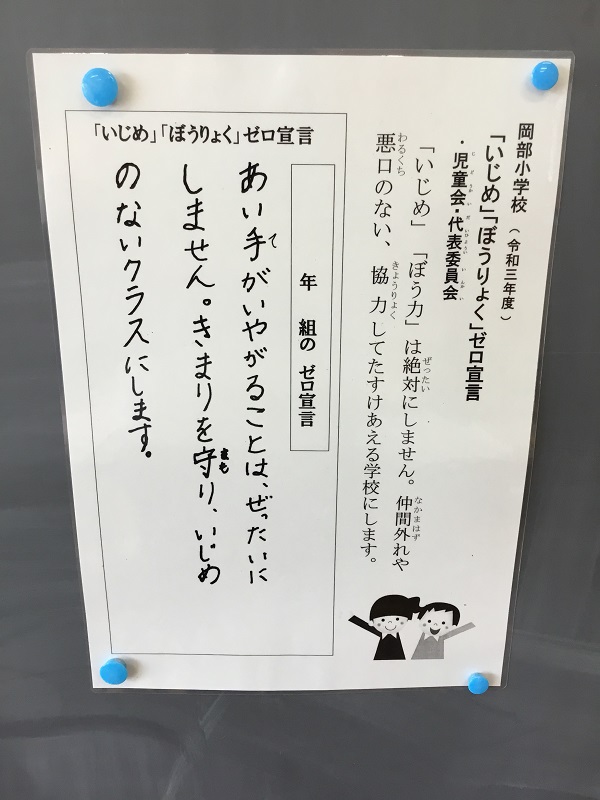 岡部小学校 （令和三年度）
「いじめ」「ぼうりょく」ゼロ宣言
・児童会・代表委員会
「いじめ」「ぼう力」は絶対にしません。仲間外れや
悪口のない、協力してたすけあえる学校にします。
「いじめ」「ぼうりょく」ゼロ宣言
年 組の ゼロ宣言
あい手がいやがることは、ぜったいに
しません。きまりを守り、いじめ
のないクラスにします。